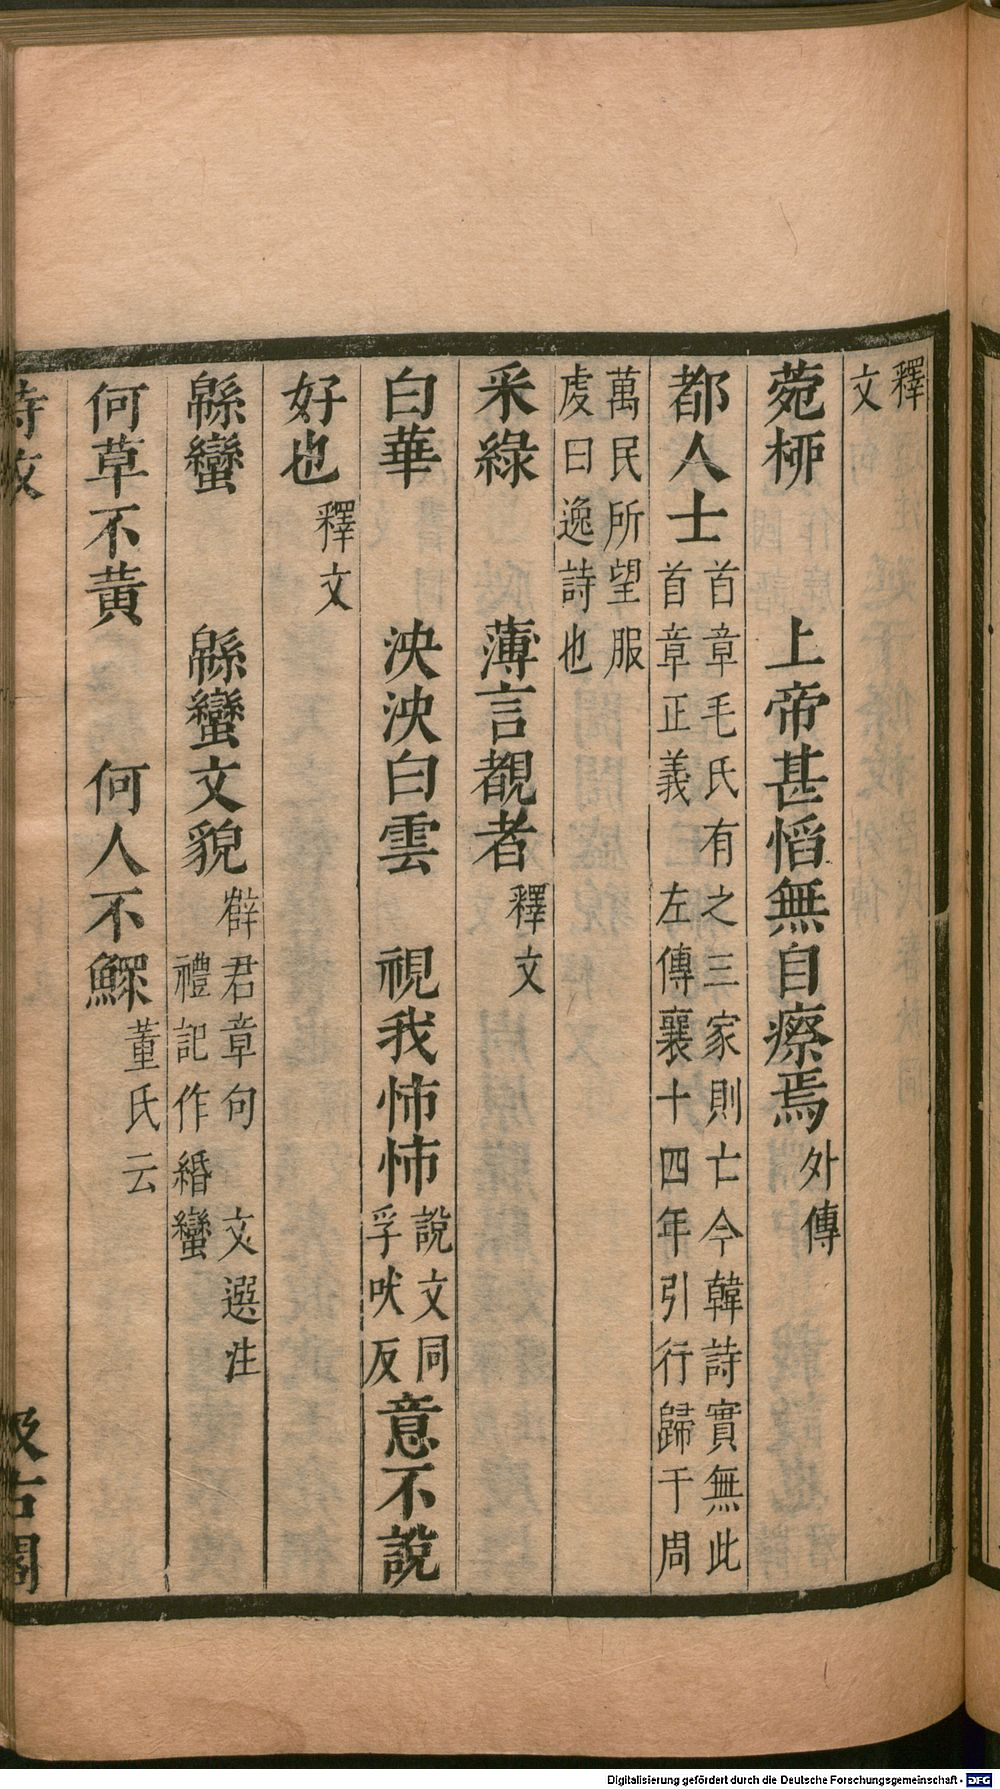 釋文
菀桺 上帝甚慆無自瘵焉外傳
都人士首章毛氏有之三家則亡今韓詩實無此首章正義 左傳襄十四年引行歸于周
萬民所望服䖍曰逸詩也
采綠 薄言覩者釋文
白華 泱泱白雲 視我怖怖說文同孚吠反意不說
好也釋文
緜蠻 緜蠻文貌薛君章句 文選注禮記作緡蠻
何草不黃 何人不鰥董氏云
詩攷 汲古閣
Digitalisierung gefördert durch die Deutsche Forschungsgemeinschaft - DFG